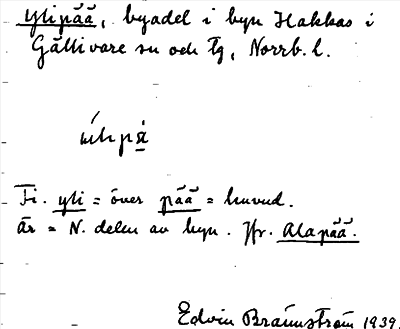 Ylipää, byadel i byn Hakkas i
Gällivare sn och tg, Norrb. l.
Fi. yli = över pää = huvud.
Är = N. delen av byn. Jfr. Alapää.
Edvin Brännström 1939.